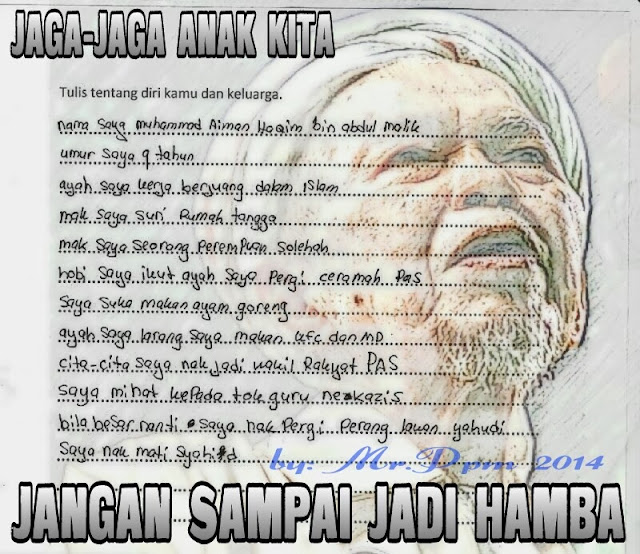 JAGA-JAGA ANAK KITA
Tulis tentang diri kamu dan keluarga.
nama saya muhammad Aiman Haqim bin abdul malik
umur saya 9 tahun
ayah saya kerja berjuang dalam islam
mak saya suri Rumah tangga
mak saya seorang Perempuan solehah
hobi saya ikut ayah saya Pergi ceramah Pas
Saya suka makan ayam goreng
ayah saya larang saya makan kfc dan MD
cita-cita saya nak jadi wakil Rakyat PAS
saya minat kepada tok guru nekazis
bila besar nanti saya nak Pergi Perang lawan yahudi
Saya nak mati syahid
by: Mr.Ppm 2014
JANGAN SAMPAI JADI HAMBA